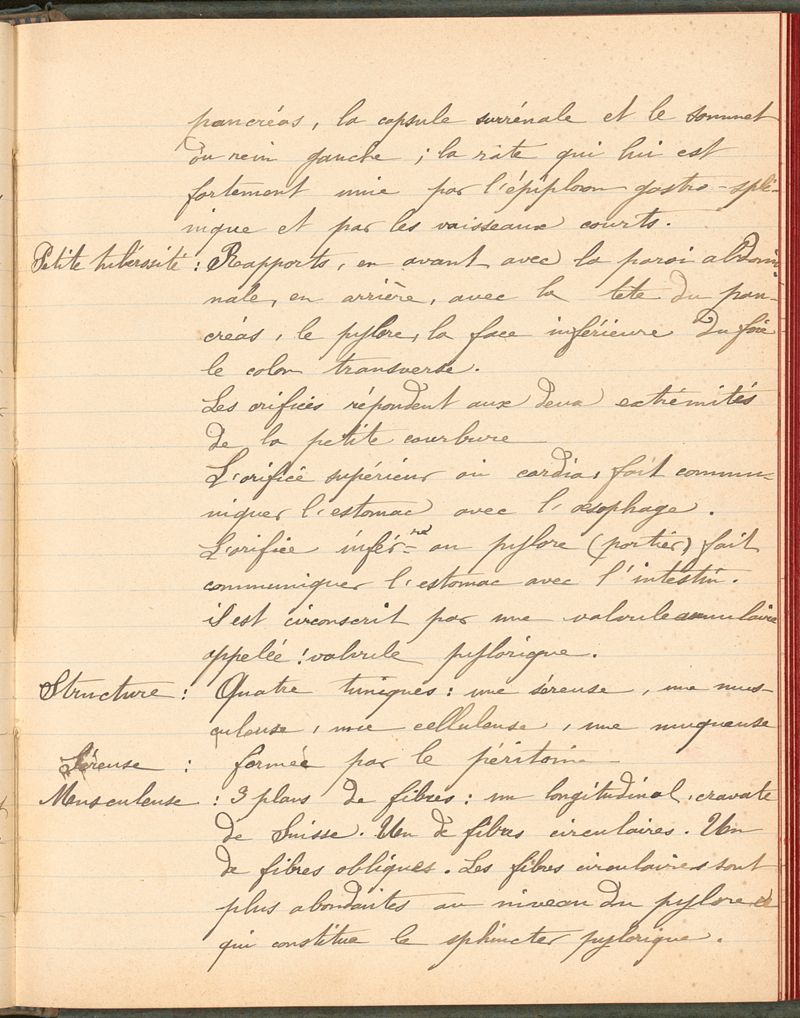 pancréas, la capsule surrénale et le sommet
du rein gauche ; la rate qui lui est
fortement unie par l'épiploon gastro-splé-
nique et par les vaisseaux courts.
Petite tubérosité : Rapports, en avant avec la paroi abdomi-
nale, en arrière, avec la tete du pan-
créas, le pylore, la face inférieure du foie
le colon transverse.
Les orifices répondent aux deux extrémités
de la petite courbure
L'orifice supérieur ou cardia, fait commu-
niquer l'estomac avec l'œsophage.
L'orifice infér-re ou pylore (portier) fait
communiquer l'estomac avec l'intestin.
il est circonscrit par une valvule annulaire
appelée : valvule pylorique.
Structure : Quatre tuniques : une séreuse, une mus-
culeuse, une celluleuse, une muqueuse
Séreuse : formée par le péritoine
Musculeuse : 3 plans de fibres : un longitudinal, cravate
de Suisse. Un de fibres circulaires. Un
de fibres obliques. Les fibres circulaires sont
plus abondantes au niveau du pylore ce
qui constitue le sphincter pylorique.